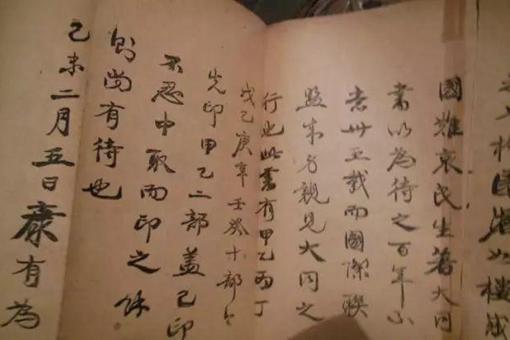 之七檜園澹如樓感
國難哀民生著大同
書以為待之百年不
意卅五載而國際聯
盟成身親見大同之
行也此書有甲乙丙丁
戊己庚辛壬癸十部今
先印甲乙二部蓋已印
不忍中取而印之餘
則尚有待也
己未二月五日康有為